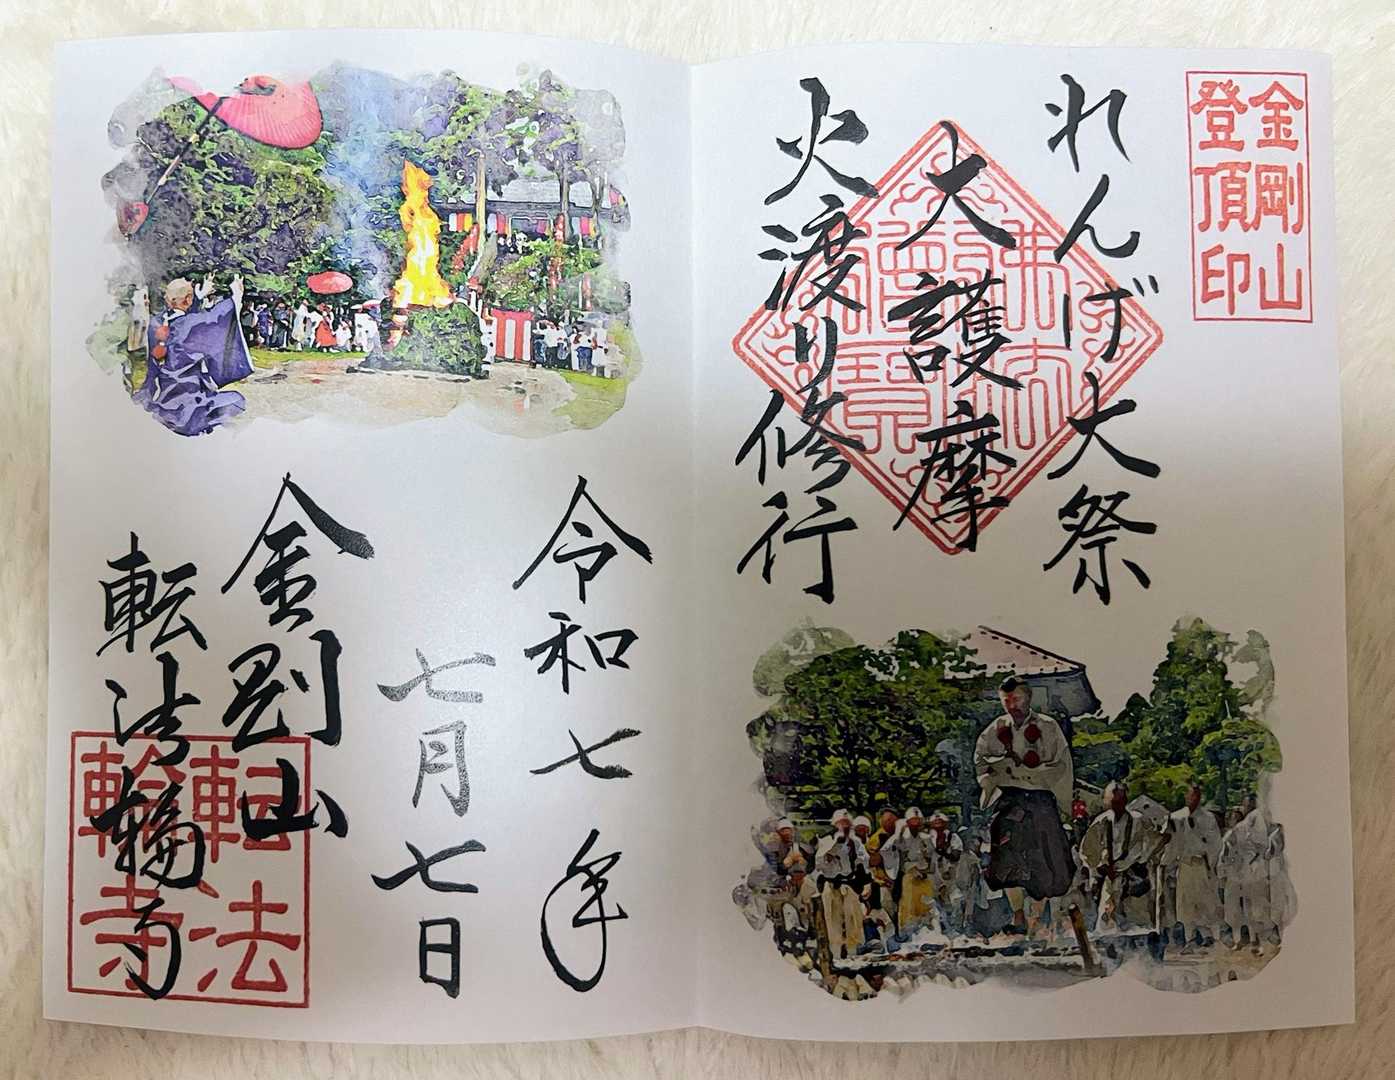 金剛山
登頂印
れんげ大祭
大護摩
火渡り修行
佛法僧寳
令和七年
七月七日
金剛山
転法輪寺
転法
輪寺